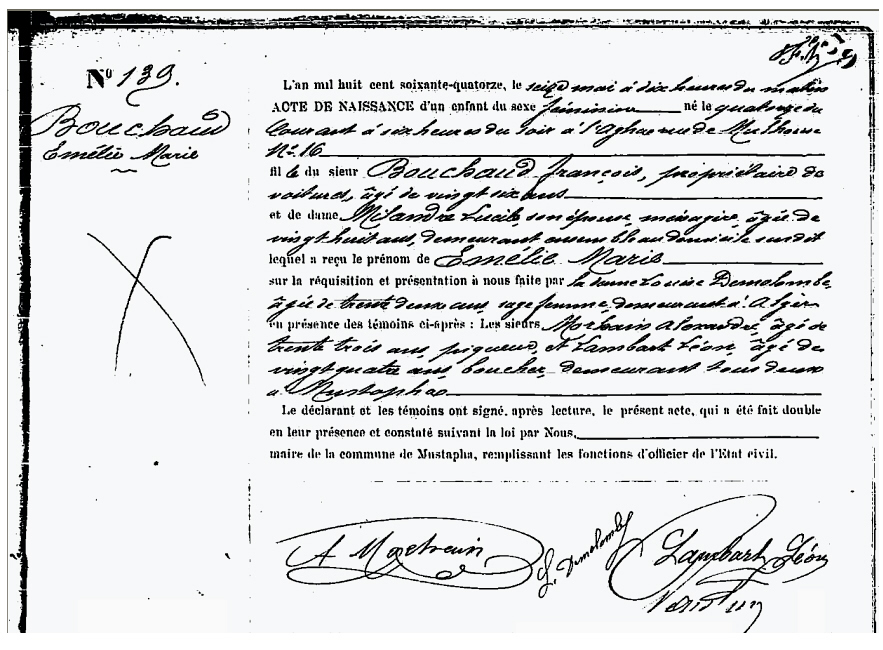 N° 139.
Bouchaud
Emélie Marie
L'an mil huit cent soixante-quatorze, le seize mai à dix heures du matin
ACTE DE NAISSANCE d'un enfant du sexe féminin né le quatorze du
Courant à six heures du soir à l'Agha rue de Mulhouse
N° 16
fille du sieur Bouchaud François, propriétaire de
voitures, âgé de vingt six ans
et de dame Milandre Lucile, son épouse, ménagère, âgée de
vingt huit ans, demeurant ensemble au domicile susdit
lequel a reçu le prénom de Emélie Marie
sur la réquisition et présentation à nous faite par la dame Louise Demolombe
âgée de trente deux ans, sage femme, demeurant à Alger
en présence des témoins ci-après : Les sieurs Alexandre, âgé de
trente trois ans, piqueur, et Lambart Léon, âgé de
vingt quatre ans, boucher, demeurant tous deux
à Mustapha
Le déclarant et les témoins ont signé, après lecture, le présent acte, qui a été fait double
en leur présence et constaté suivant la loi par Nous,
maire de la commune de Mustapha, remplissant les fonctions d'officier de l'Etat civil.
A
L. Demolombe
Lambart Léon